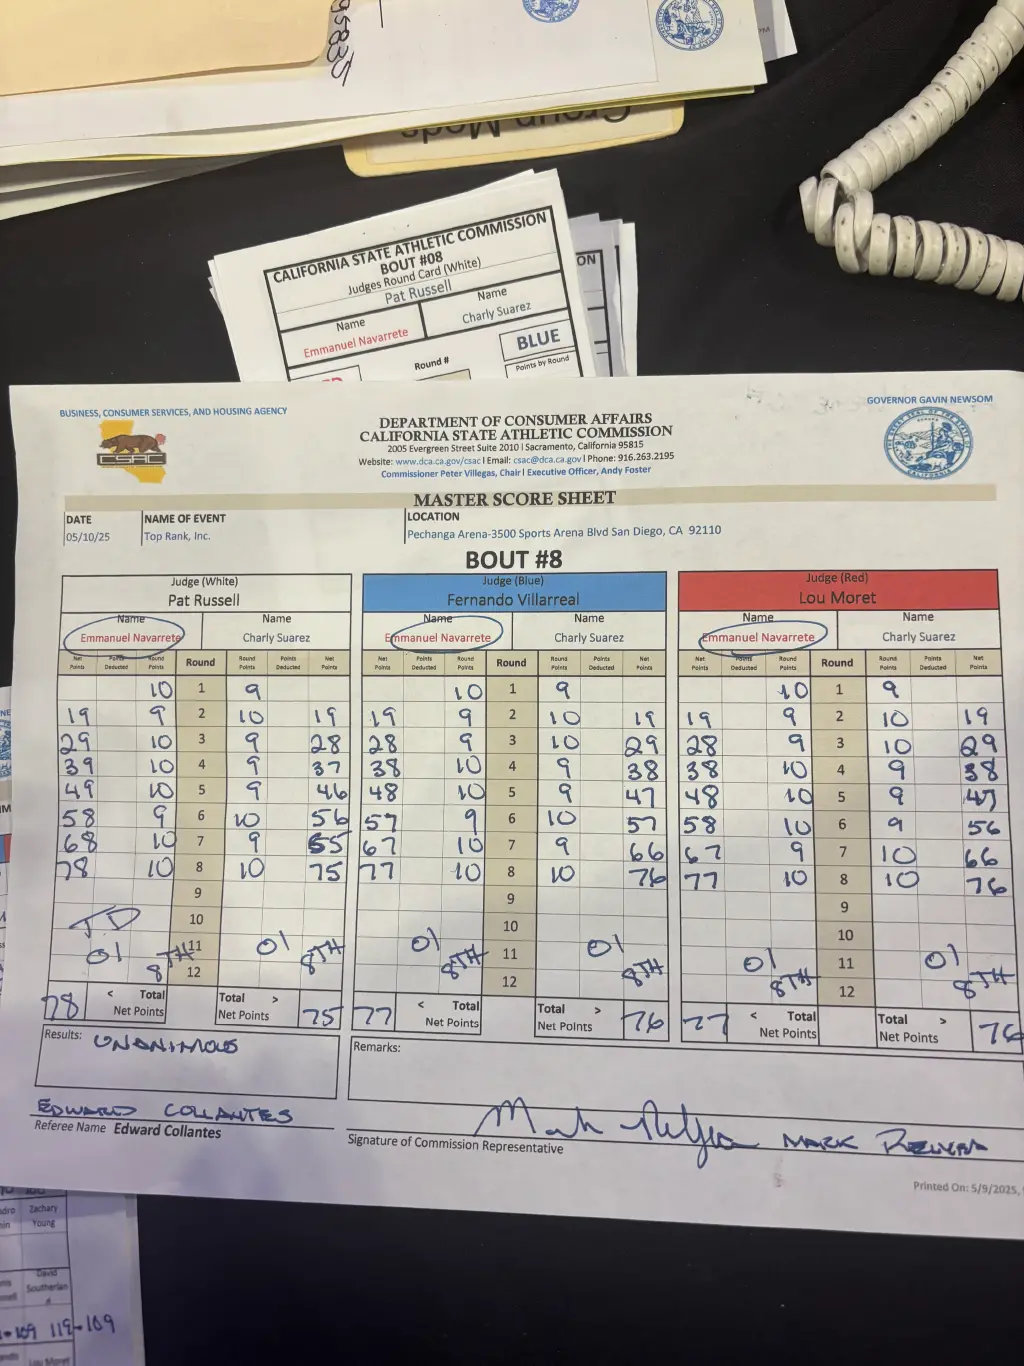 95835
Group Meds
CALIFORNIA STATE ATHLETIC COMMISSION
BOUT #08
Judges Round Card (White)
Pat Russell
Name Name
Emmanuel Navarrete Charly Suarez
Round # BLUE
Points by Round
ON
BUSINESS, CONSUMER SERVICES, AND HOUSING AGENCY
GOVERNOR GAVIN NEWSOM
CSAC
DEPARTMENT OF CONSUMER AFFAIRS
CALIFORNIA STATE ATHLETIC COMMISSION
2005 Evergreen Street Suite 2010 | Sacramento, California 95815
Website: www.dca.ca.gov/csac | Email: csac@dca.ca.gov | Phone: 916.263.2195
Commissioner Peter Villegas, Chair | Executive Officer, Andy Foster
MASTER SCORE SHEET
DATE NAME OF EVENT LOCATION
05/10/25 Top Rank, Inc. Pechanga Arena-3500 Sports Arena Blvd San Diego, CA 92110
BOUT #8
Judge (White) Judge (Blue) Judge (Red)
Pat Russell Fernando Villarreal Lou Moret
Name Name Name Name Name Name
Emmanuel Navarrete Charly Suarez Emmanuel Navarrete Charly Suarez Emmanuel Navarrete Charly Suarez
Net Points Points Deducted Round Points Round Round Points Points Deducted Net Points Net Points Points Deducted Round Points Round Round Points Points Deducted Net Points Net Points Points Deducted Round Points Round Round Points Points Deducted Net Points
10 1 9 10 1 9 10 1 9
19 9 2 10 19 19 9 2 10 19 19 9 2 10 19
29 10 3 9 28 28 9 3 10 29 28 9 3 10 29
39 10 4 9 37 38 10 4 9 38 38 10 4 9 38
49 10 5 9 46 48 10 5 9 47 48 10 5 9 47
58 9 6 10 56 57 9 6 10 57 58 10 6 9 56
68 10 7 9 65 67 10 7 9 66 67 9 7 10 66
78 10 8 10 75 77 10 8 10 76 77 10 8 10 76
9 9 9
TD 10 10 10
01 8TH 11 01 8TH 01 8TH 11 01 8TH 01 8TH 11 01 8TH
12 12 12
78 < Total Net Points Total > Net Points 75 77 < Total Net Points Total > Net Points 76 77 < Total Net Points Total > Net Points 76
Results: UNANIMOUS Remarks:
EDWARD COLLANTES
Referee Name Edward Collantes
Signature of Commission Representative MARK
Printed On: 5/9/2025,
Zachary
Young
David
Southerlan
109 119-109
Lou Moret